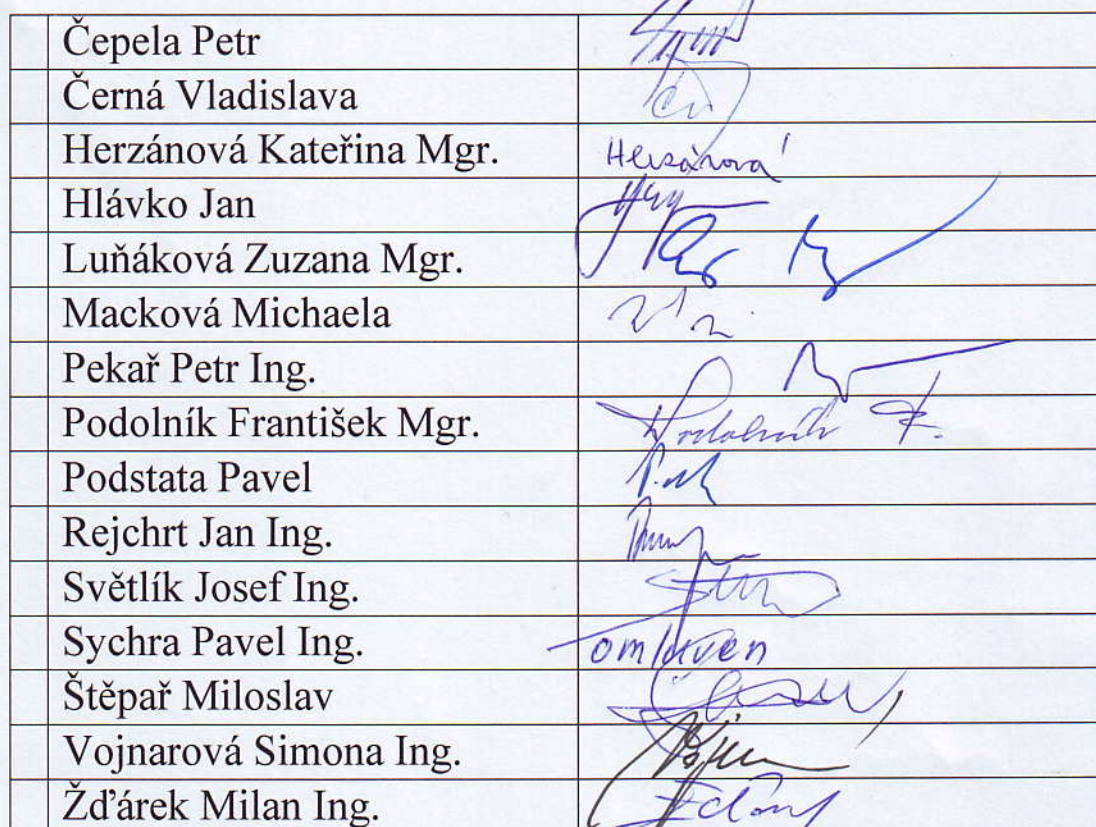 Čepela Petr
Černá Vladislava
Herzánová Kateřina Mgr. Herzánová
Hlávko Jan
Luňáková Zuzana Mgr.
Macková Michaela
Pekař Petr Ing.
Podolník František Mgr. Podolník F.
Podstata Pavel
Rejchrt Jan Ing.
Světlík Josef Ing.
Sychra Pavel Ing. omluven
Štěpař Miloslav
Vojnarová Simona Ing.
Žďárek Milan Ing.